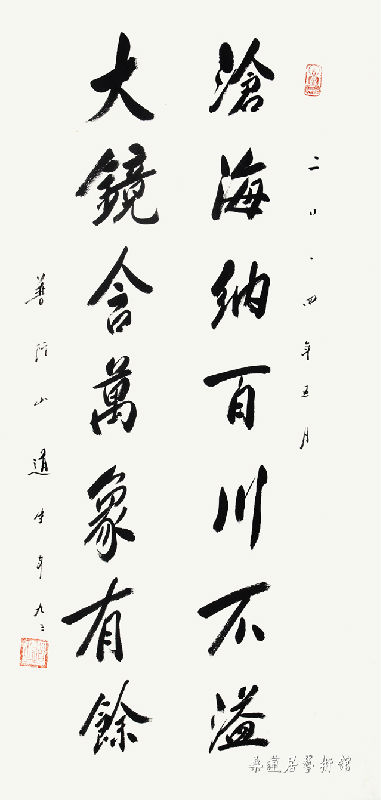 二〇一四年五月
滄海納百川不溢
大鏡含萬象有餘
普陀山道生年九二
桑蓮居藝術館